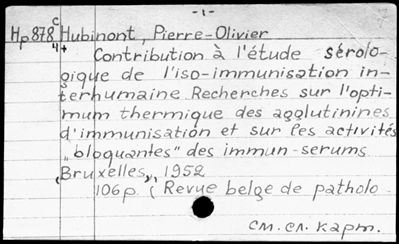 -1-
Hp878 c/4+ Hubinont, Pierre-Olivier
Contribution à l'étude sérolo-
gique de l'iso-immunisation in-
terhumaine Recherches sur l'opti-
mum thermique des agglutinines
d'immunisation et sur les activités
„bloquantes" des immun-serums
Bruxelles, 1952
106p. (Revue belge de patholo
см. сл. карт.